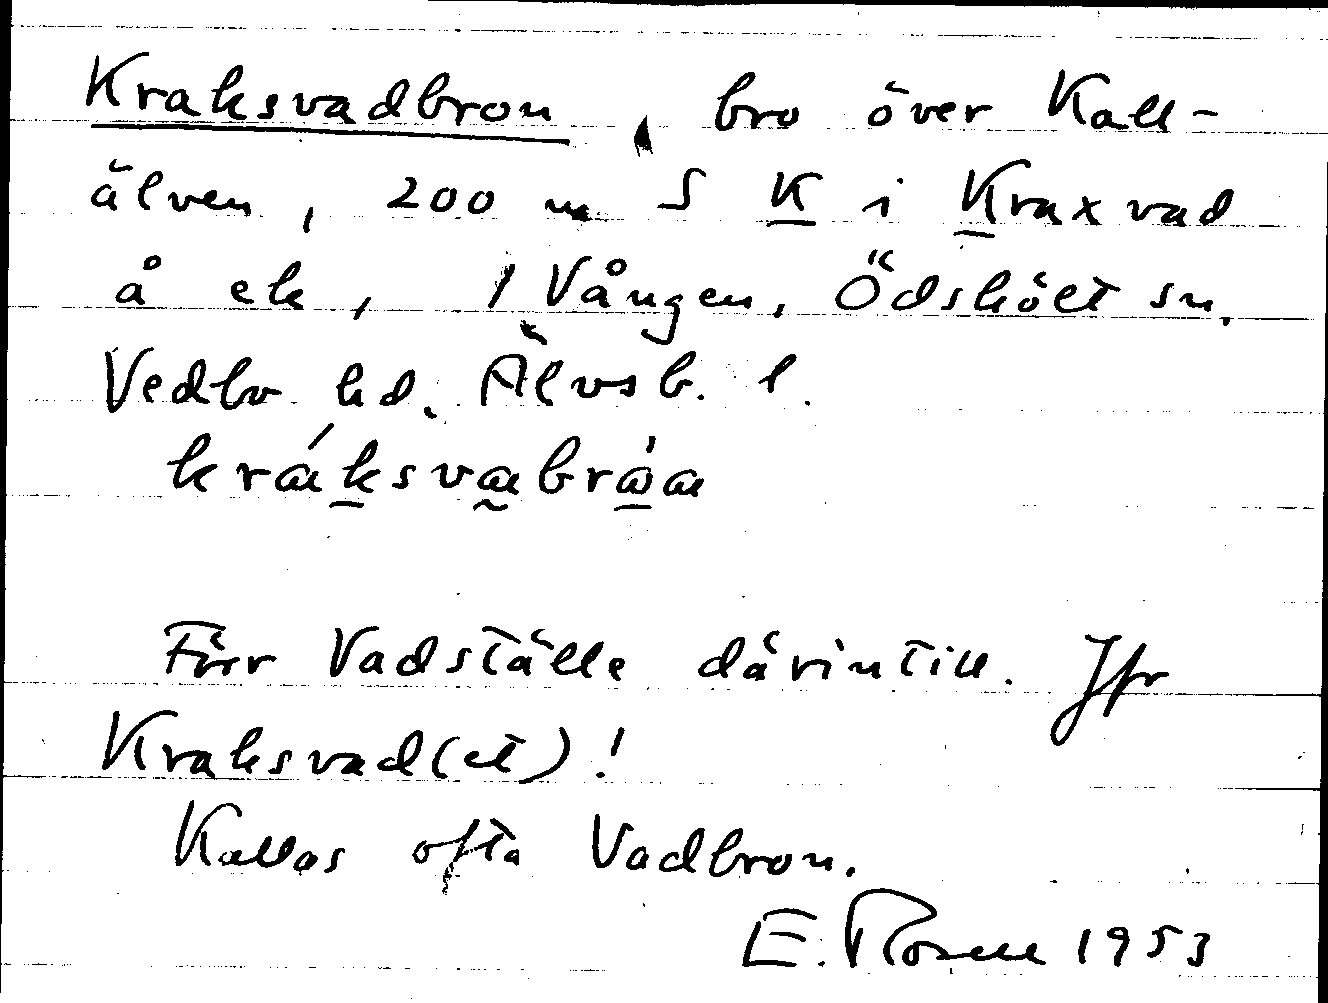 Kraksvadbron, bro över Kall-
älven, 200 m S K i Kraxvad
å ek, 1 Vången, Ödskölt sn.
Vedbo hd. Älvsb. l.
kráksvabråa
Förr Vadställe därintill. Jfr
Kraksvad(et)!
Kallas ofta Vadbron.
E. Rosell 1953